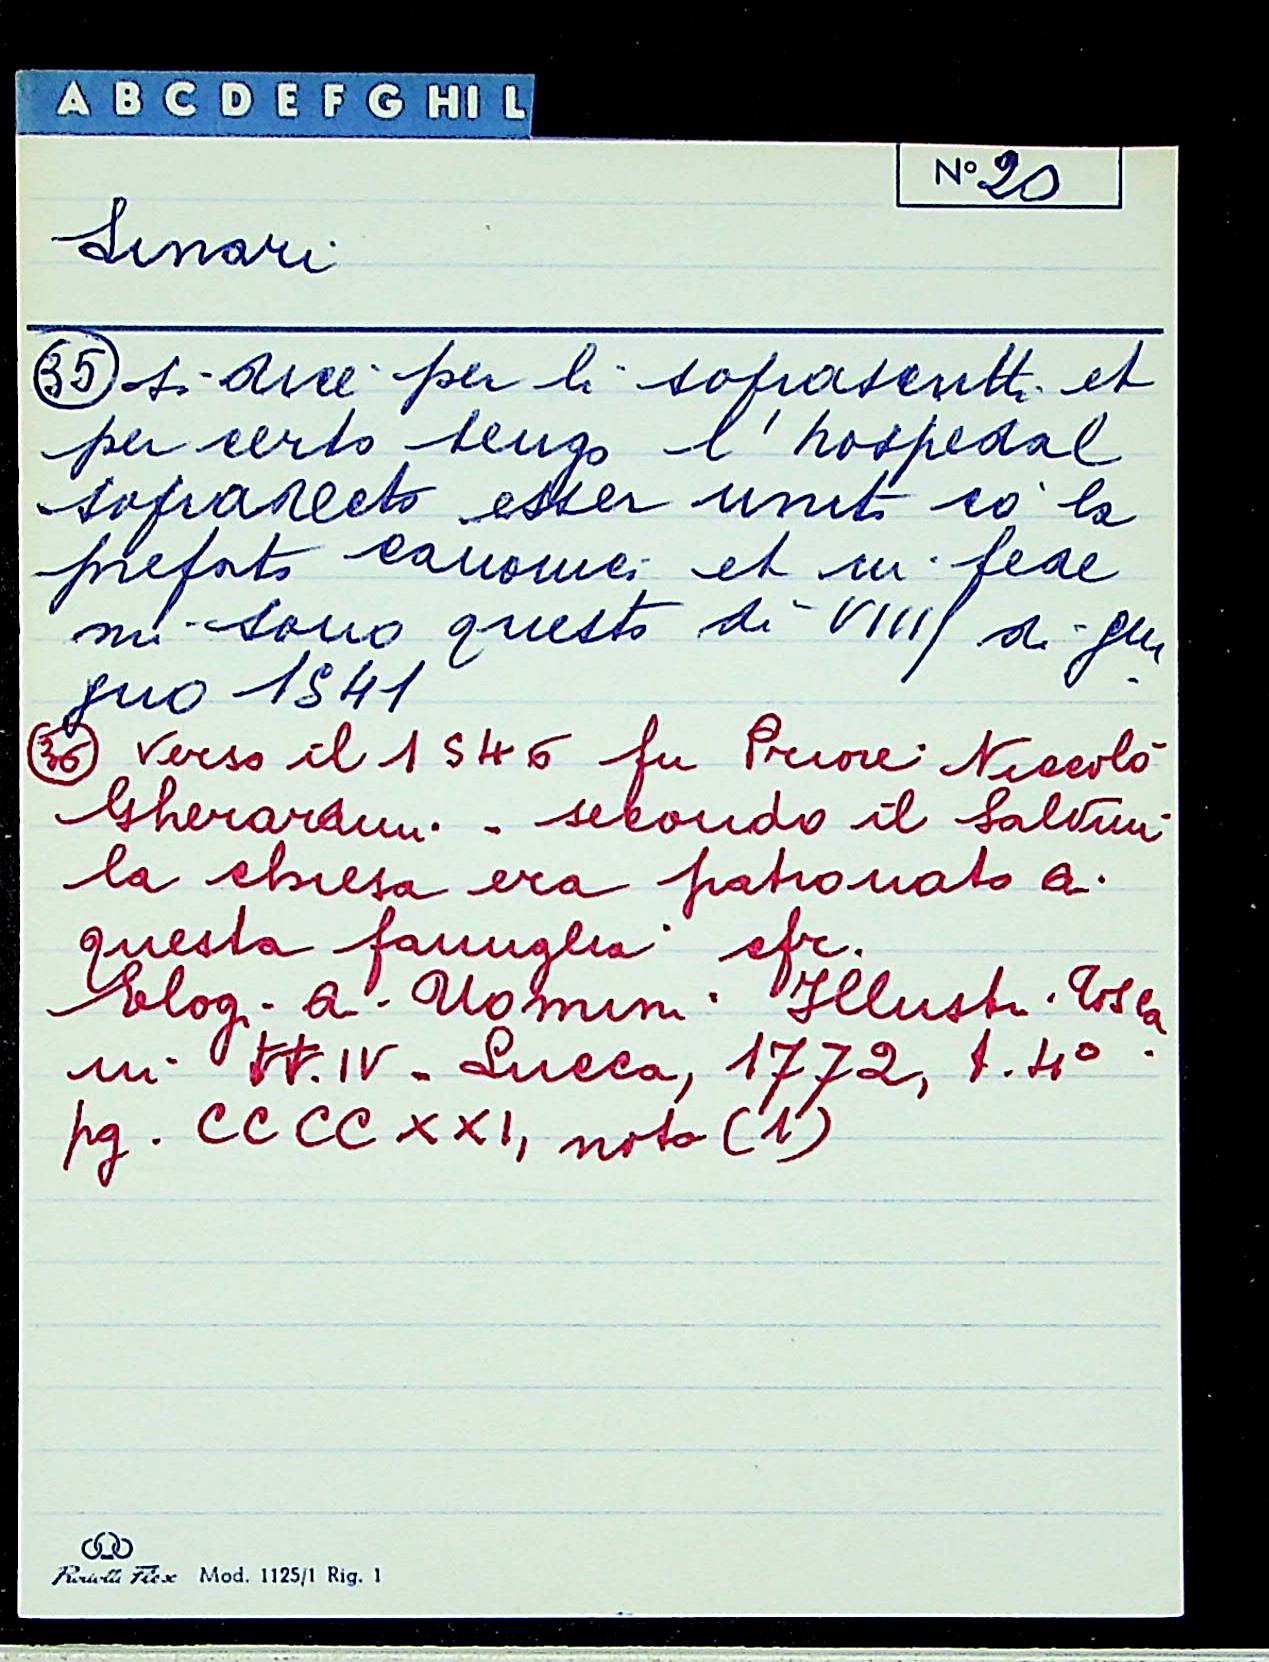 A B C D E F G HI L
N° 20
Linari
35 si dice per li soprascritti et
per certo tengo l'hospedal
sopradecto esser unito cò la
prefato canonici et in fede
mi sono questo dì VIIII di giu
gno 1541
36 Verso il 1546 fu Priore Niccolò
Gherardini - secondo il Salvini
la chiesa era patronato a
questa famiglia cfr.
Elog. a Uomini Illustri Tosca
ni TT. IV - Lucca, 1772, t. 4°
pg. CCCCXXI, nota (1)
Mod. 1125/1 Rig. 1